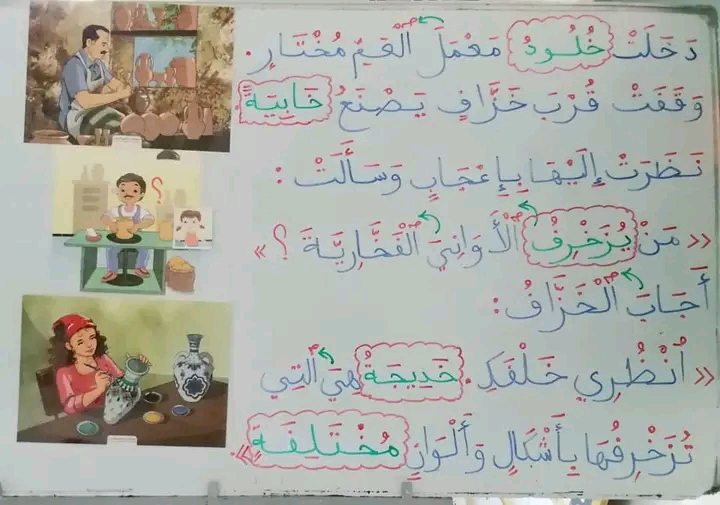 دَخَلَتْ خُلُودُ مَعْمَلَ الْعَمِّ مُخْتَارٍ.
وَقَفَتْ قُرْبَ خَزَّافٍ يَصْنَعُ خَابِيَةً.
نَظَرَتْ إِلَيْهَا بِإِعْجَابٍ وَسَأَلَتْ :
«مَنْ يُزَخْرِفُ الْأَوَانِيَ الْفَخَّارِيَّةَ ؟»
أَجَابَ الْخَزَّافُ:
«اُنْظُرِي خَلْفَكِ. خَدِيجَةُ هِيَ الَّتِي
تُزَخْرِفُهَا بِأَشْكَالٍ وَأَلْوَانٍ مُخْتَلِفَةٍ».
؟